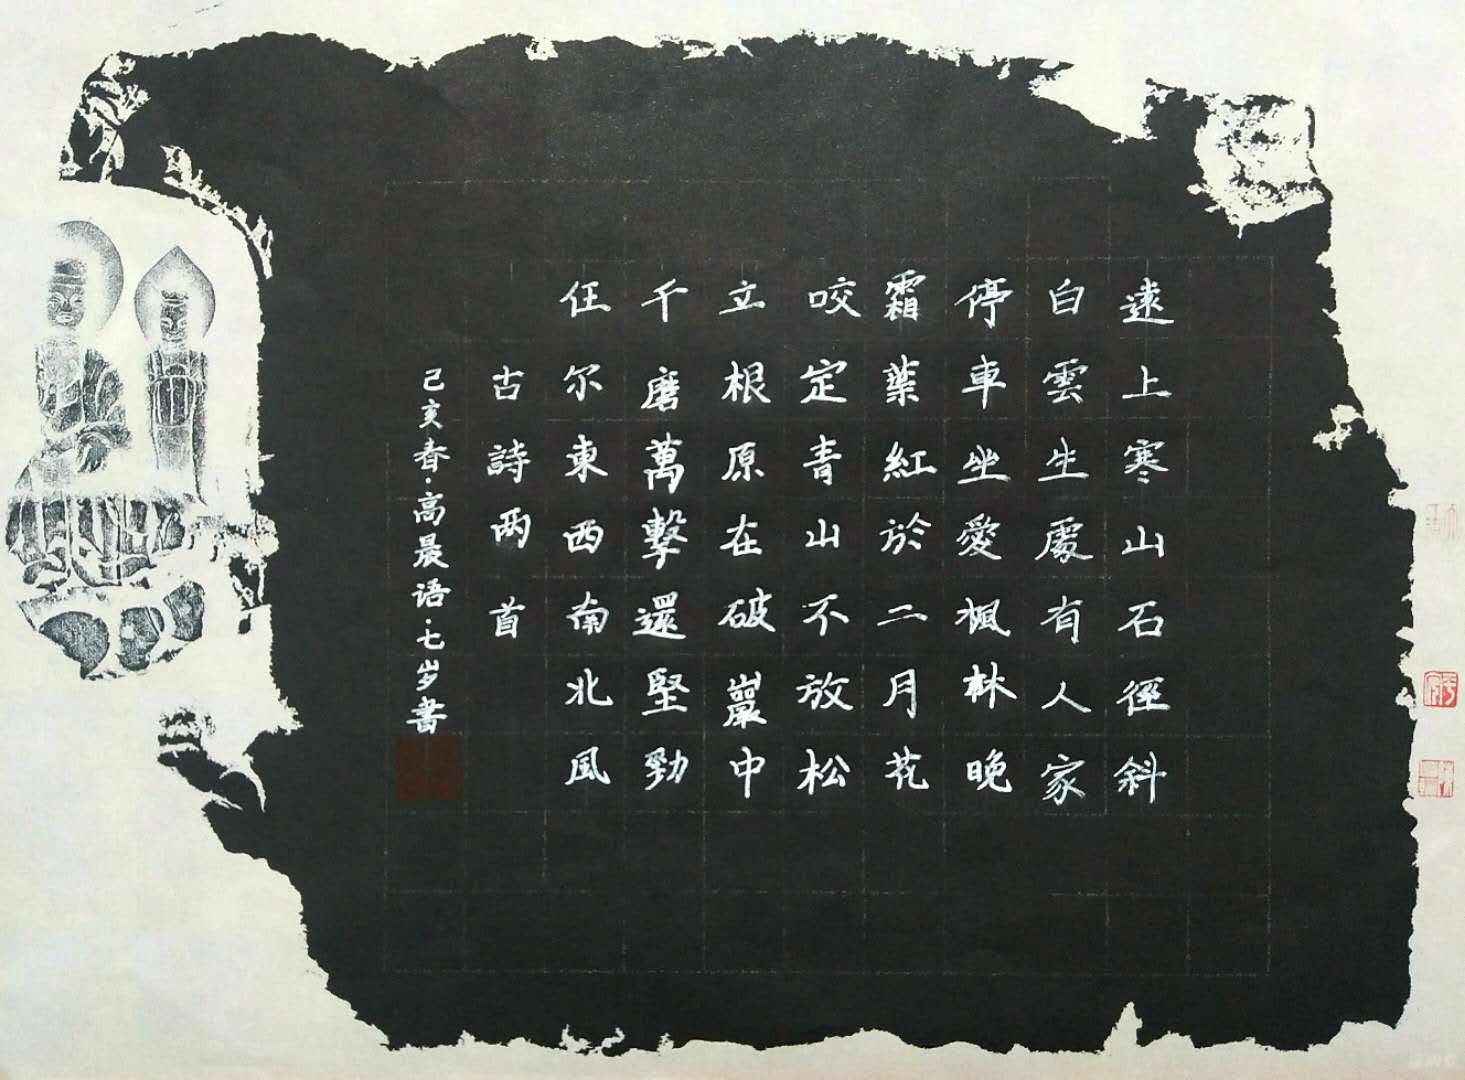 遠上寒山石徑斜
白雲生處有人家
停車坐愛楓林晚
霜葉紅於二月花
咬定青山不放松
立根原在破巖中
千磨萬擊還堅勁
任尔東西南北風
古詩两首
己亥春·高晨语·七岁書